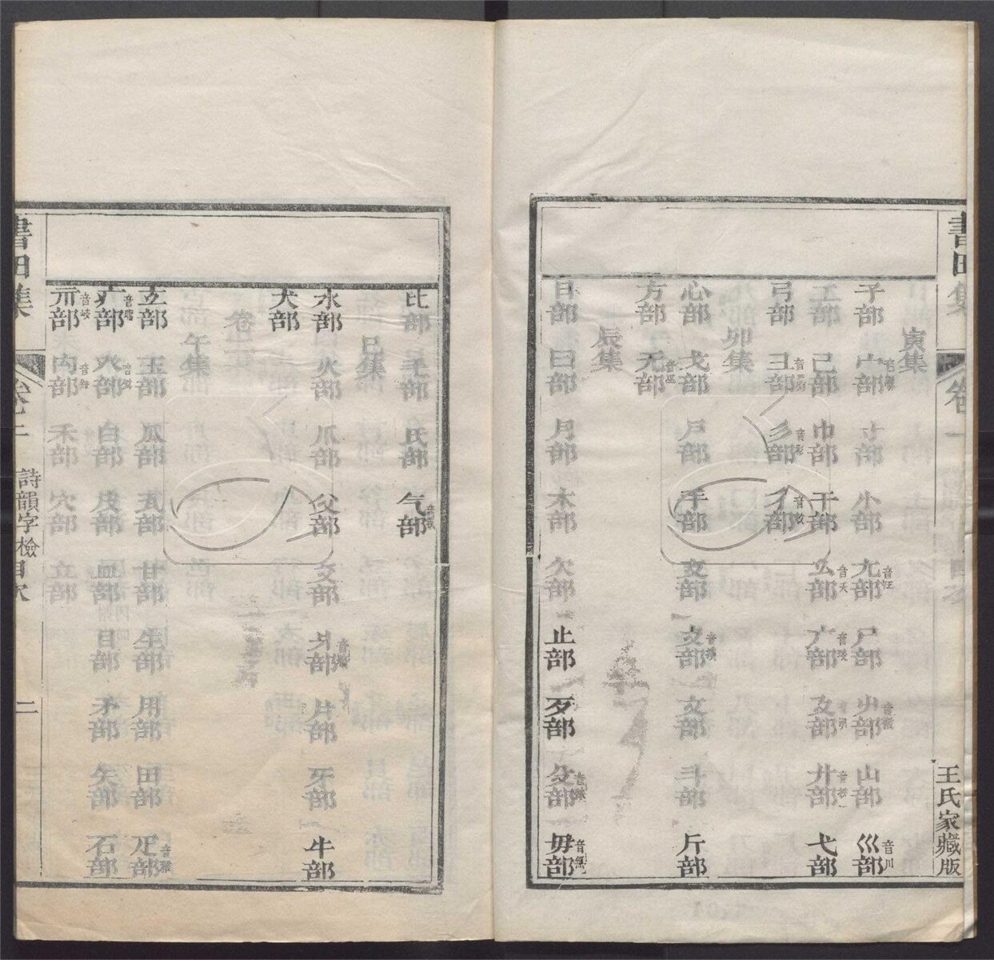 書田集
卷一
王氏家藏版
寅集
子部 宀部 寸部 小部 尢部音汪 尸部 屮部 山部 巛部音川
工部 己部 巾部 干部 幺部 广部 廴部 廾部 弋部
弓部 彐部 彡部 彳部
卯集
心部 戈部 戶部 手部 支部 攴部 文部 斗部 斤部
方部 无部
辰集
日部 曰部 月部 木部 欠部 止部 歹部 殳部 毋部
比部 毛部 氏部 气部
巳集
水部 火部 爪部 父部 爻部 爿部 片部 牙部 牛部
犬部
午集
玄部 玉部 瓜部 瓦部 甘部 生部 用部 田部 疋部
疒部 癶部 白部 皮部 皿部 目部 矛部 矢部 石部
示部 禸部 禾部 穴部 立部
書田集
卷一
詩韻字檢目次
二